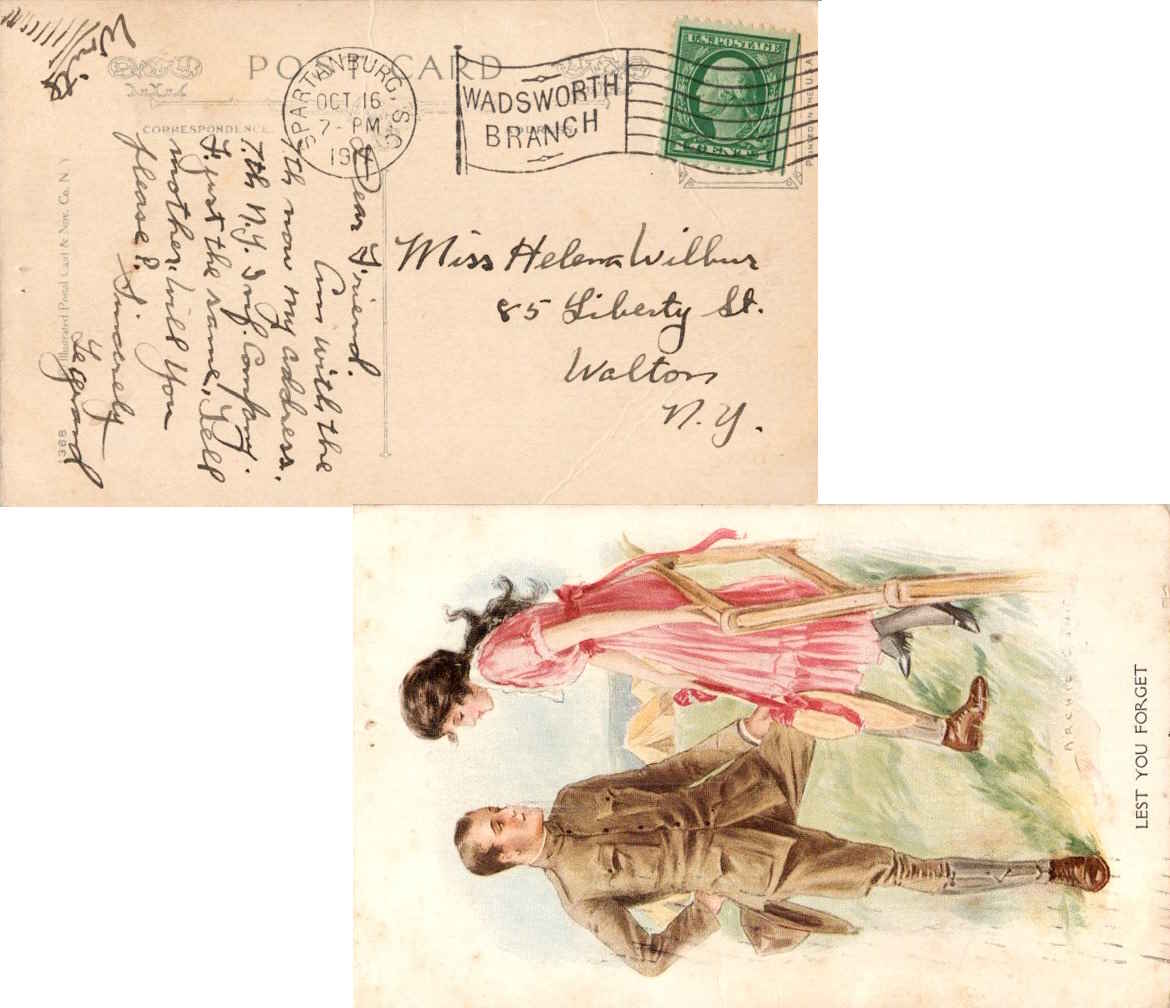 Write
POST CARD
CORRESPONDENCE.
ADDRESS.
SPARTANBURG, S.C.
OCT 16
7 - PM
WADSWORTH
BRANCH
U.S. POSTAGE
PRINTED IN THE U.S.A.
Dear Friend.
Am with the
7th now my address.
7th N.Y. Inf. Company.
F. just the same, Tell
mother, will you
please?
Sincerely
Legrand
Miss Helena Wilbur
85 Liberty St.
Walton
N.Y.
Illustrated Postal Card & Nov. Co. N.Y
LEST YOU FORGET
ARCHIE